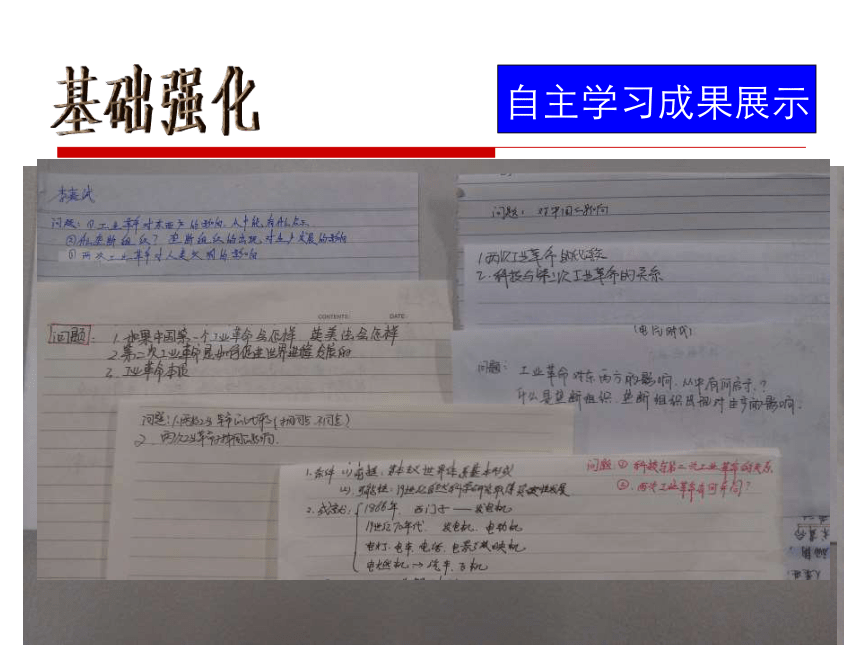 基础强化
自主学习成果展示
问题：①工业革命对东西方的影响，从中能有什么启示
②什么是垄断组织？垄断组织的出现，对生产发展的影响
③两次工业革命对人类文明的影响
问题：对中国的影响
1.两次工业革命的比较
2.科技与第二次工业革命的关系
CONTENTS: DATE:
问题：1.如果中国第一个工业革命会怎样 英美法会怎样
2.第二次工业革命是如何促进世界进步发展的
3.工业革命本质
（电气时代）
问题：工业革命对东西方的影响，从中有何启示？
什么是垄断组织，垄断组织出现对生产的影响．
问题：1.两次工业革命的比较（相同点 不同点）
2.两次工业革命对中国的影响．
1.条件 (1)前提：资本主义世界体系基本形成
(2)19世纪自然科学研究取得突破性发展
2.成就：1866年 西门子——发电机
19世纪70年代．发电机．电动机
电灯．电车．电话．电影放映机
内燃机→汽车．飞机
问题：①科技与第二次工业革命的关系
②．两次工业革命有何异同？